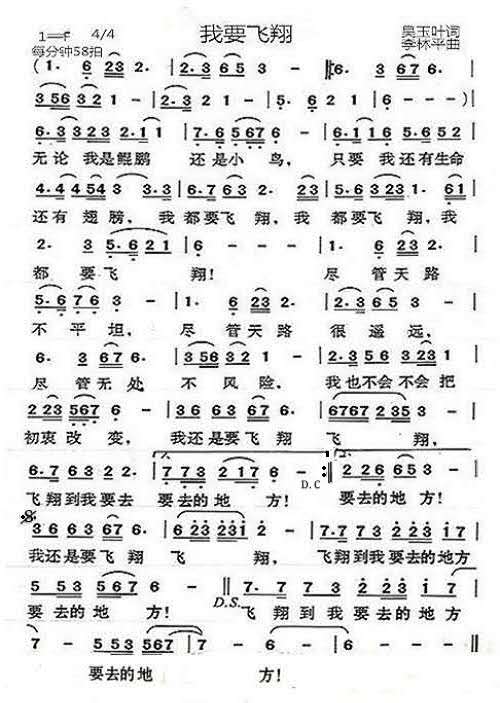 我要飞翔
1=F 4/4
每分钟58拍
吴玉叶词
李林平曲
(1· 6 23 2· | 2·3 65 3 - ‖: 6· 3 67 6· |
3 56 32 1 - | 2·1 2 3 - | 5· 6 2 1 | 6 - - -) |
6·3 323 2·1 | 7·6 567 6 - | 6·1 116 5·6 52 |
无论 我是鲲鹏 还是小 鸟， 只要 我还有生命
4·4 454 3 3·3 | 6·7 63 2· 3 | 5·6 323 1· 61 |
还有 翅膀， 我 都要飞 翔，我 都要飞 翔，我
2· 3 5·6 21 | 6 - - - | 1· 6 23 2· |
都 要飞 翔！ 尽 管天路
5·6 76 3 - | 1· 6 23 2· | 2·3 65 3 - |
不平坦， 尽 管天路 很 遥远，
6· 3 67 6· | 3 56 32 1 - | 2·3 56 3 231 |
尽 管无处 不 风险， 我也不会不会把
2 23 567 6 - | 36 63 67 6· | 6767 2 35 3 - |
初衷 改 变， 我还是要飞 翔 飞 翔，
6·7 63 2 2· | 7 7 3 2 17 6 - :‖ 2 26 65 3 - |
D.C
飞翔到我要去 要去的地 方！ 要去的地 方！
3 6 63 67 6· | 6 23 231 2 - | 7·7 73 2 23 17 |
我还是要飞 翔 飞 翔， 飞翔到我要去的地方
5 53 567 6 - ‖ 7· 7 73 | 2 23 1 7 |
要去的地 方！ D.S. 飞 翔到 我 要去的地方
7 - 5 53 567 | 7 - 6 - | 6 - - - ‖
要去的地 方！